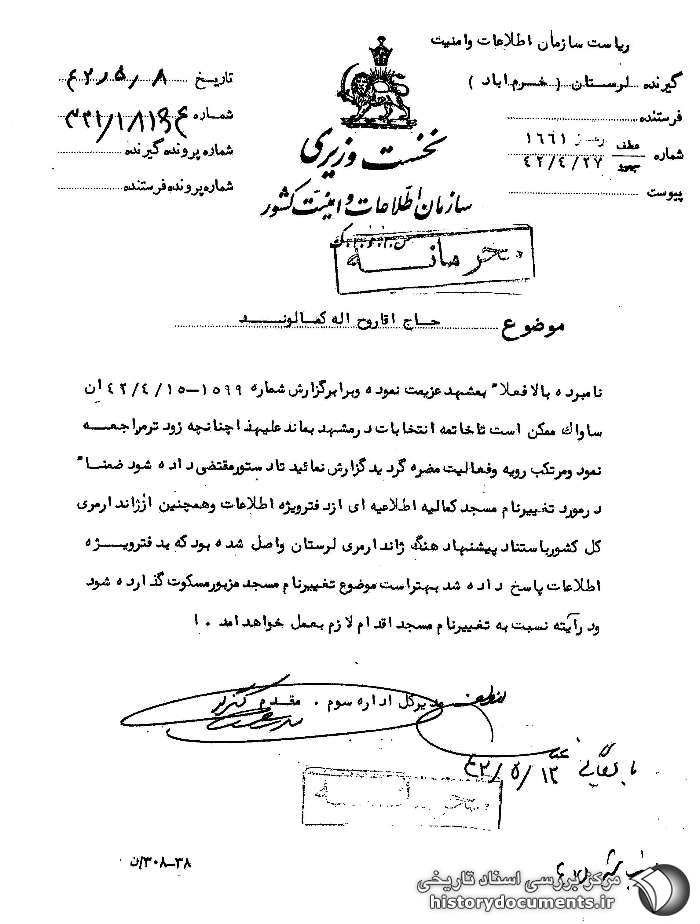 ریاست سازمان اطلاعات و امنیت
گیرنده لرستان ( خرم آباد )
فرستنده
شماره عطف رمز ۱۶۶۱
۴۲/۴/۲۷
پیوست
نخست وزیری
سازمان اطلاعات و امنیت کشور
س.ا.و.ا.ک
تاریخ ۴۲/۵/۸
شماره
شماره پرونده گیرنده
شماره پرونده فرستنده
محرمانه
موضوع حاج اقاروح اله کمالوند
نامبرده بالا فعلا" بمشهد عزیمت نموده وبرابرگزارش شماره ۱۵۹۹-۴۲/۴/۱۵ ان
ساواک ممکن است تاخاتمه انتخابات درمشهد بماند علیهذا چنانچه زود ترمراجعه
نمود ومرتکب رویه وفعالیت مضره گردید گزارش نمائید تاد ستورمقتضی داده شود ضمنا"
درمورد تغییرنام مسجد کمالیه اطلاعیه ای ازدفترویژه اطلاعات وهمچنین ازژاندارمری
کل کشورباستناد پیشنهاد هنگ ژاندارمری لرستان واصل شده بود که بدفترویژه
اطلاعات پاسخ داده شد بهتراست موضوع تغییرنام مسجد مزبورمسکوت گذارده شود
ودرآیته نسبت به تغییرنام مسجد اقدام لازم بعمل خواهد امد . ا
مدیرکل اداره سوم . مقدم
بایگانی
۴۲/۵/۱۲
محرمانه
۳۰۸-۳۸/ن
مرکز بررسی اسناد تاریخی
historydocuments.ir